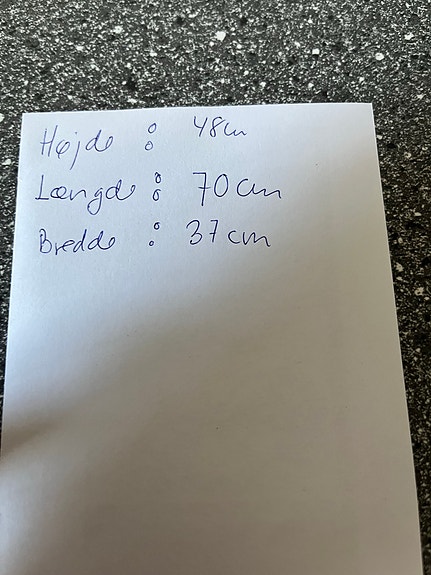 Højde : 48cm
Længde : 70cm
Bredde : 37cm